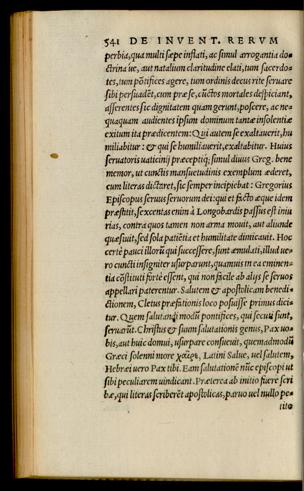 541 DE INVENT. RERVM
perbia, qua multi sæpe inflati, ac simul arrogantia do-
ctrinæ ue, aut natalium claritudine elati, tum sacerdo-
tes, tum põtifices agere, tum ordinis decus rite seruare
sibi persuadẽt, cum præ se, cũctos mortales despiciant,
asserentes sic dignitatem quam gerunt, poscere, ac ne-
quaquam audientes ipsum dominum tantæ insolentiæ
exitum ita prædicentem: Qui autem se exaltauerit, hu
miliabitur: & qui se humiliauerit, exaltabitur. Huius
seruatoris uaticinij præceptiq; simul diuus Greg. bene
memor, ut cunctis mansuetudinis exemplum æderet,
cum literas dictaret, sic semper incipiebat: Gregorius
Episcopus seruus seruorum dei: qui et facto æque idem
præstitit, sexcentas enim à Longobardis passus est iniu
rias, contra quos tamen non arma mouit, aut aliunde
quæsiuit, sed sola patiẽtia et humilitate dimicauit. Hoc
certè pauci illorũ qui successere, sunt æmulati, illud ue-
ro cuncti insigniter usurparunt, quamuis in ea eminen-
tia cõstituti fortè essent, qui non facile ab alijs se seruos
appellari paterentur. Salutem & apostolicam benedi-
ctionem, Cletus præfationis loco posuisse primus dici-
tur. Quem salutandi modũ pontifices, qui secuti sunt,
seruarũt. Christus & suum salutationis genus, Pax uo-
bis, aut huic domui, usurpare consueuit, quemadmodũ
Græci solenni more χαῖρε, Latini Salue, uel salutem,
Hebræi uero Pax tibi. Eam salutationẽ nũc episcopi ut
sibi peculiarem uindicant. Præterea ab initio fuere scri
bæ, qui literas scriberẽt apostolicas, paruo uel nullo pe-
titio